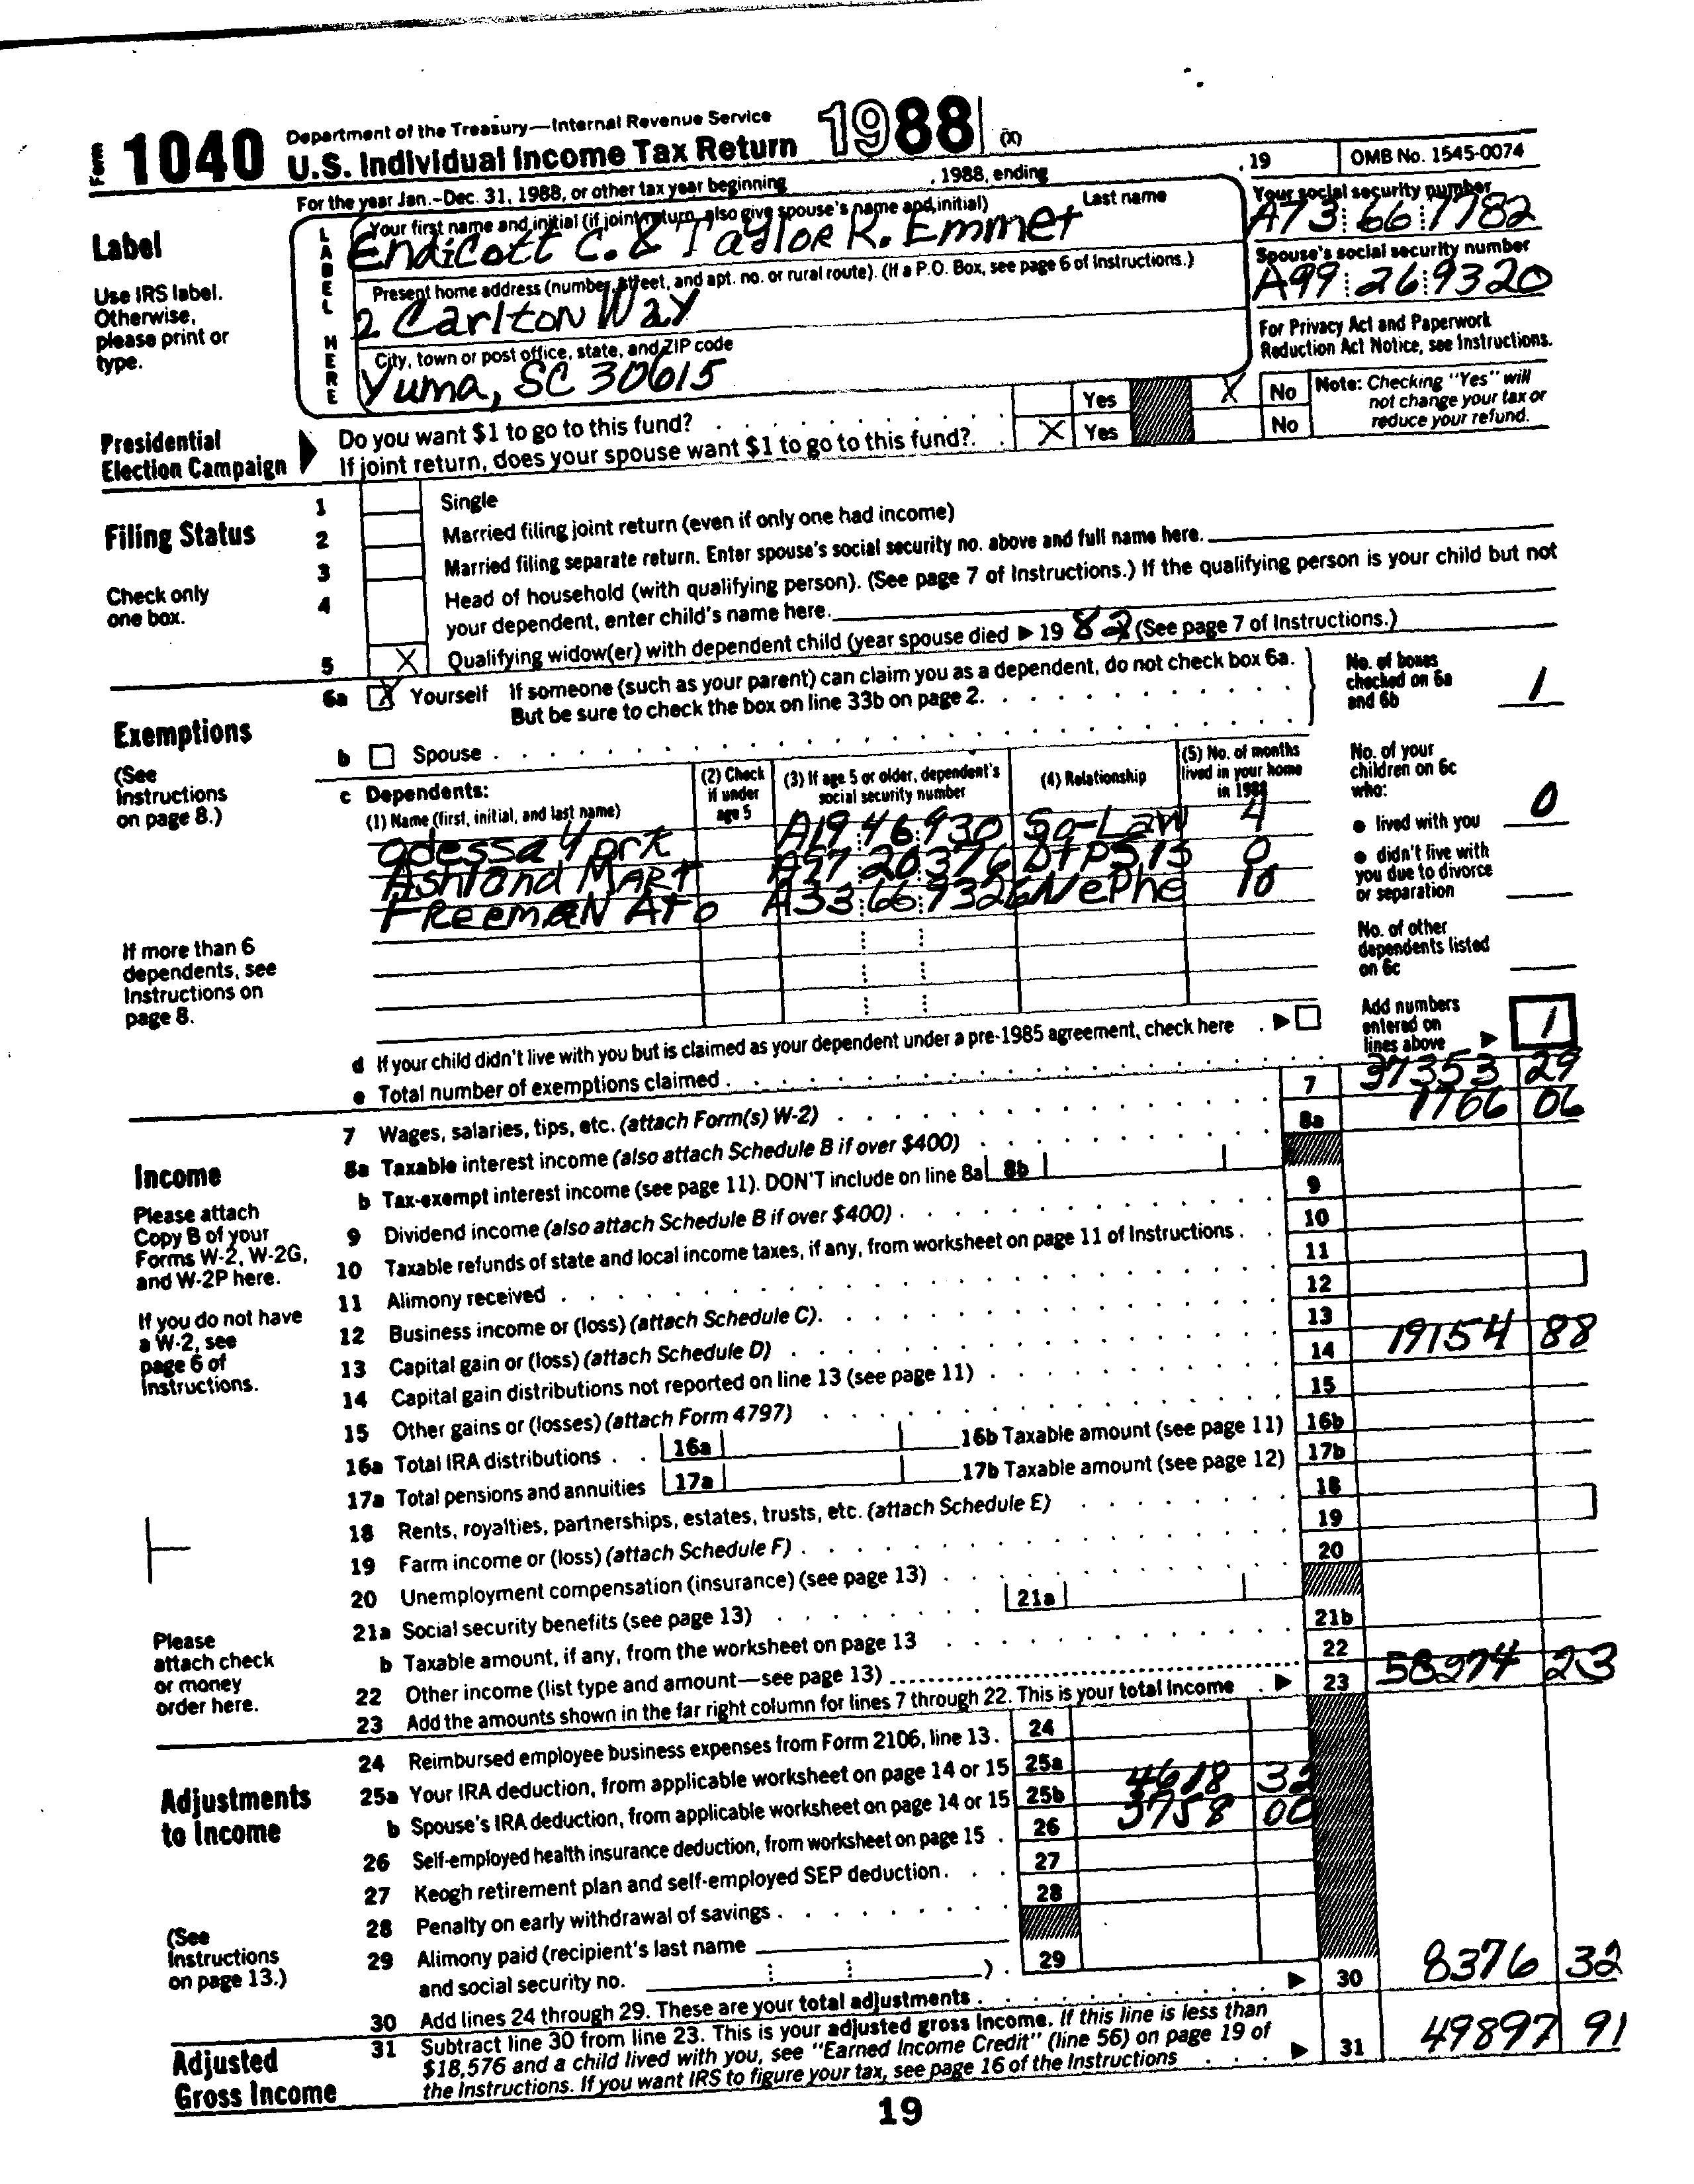 Form 1040 Department of the Treasury—Internal Revenue Service
U.S. Individual Income Tax Return 1988 (X)
For the year Jan.–Dec. 31, 1988, or other tax year beginning , 1988, ending , 19 OMB No. 1545-0074
Label
Use IRS label. Otherwise, please print or type.
LABEL HERE
Your first name and initial (if joint return, also give spouse's name and initial) Last name
Endicott C. & Taylor R. Emmet
Your social security number
A73 66 7782
Present home address (number, street, and apt. no. or rural route). (If a P.O. Box, see page 6 of Instructions.)
2 Carlton Way
Spouse's social security number
A99 26 9320
City, town or post office, state, and ZIP code
Yuma, SC 30615
For Privacy Act and Paperwork Reduction Act Notice, see Instructions.
Presidential Election Campaign
Do you want $1 to go to this fund? Yes X No
If joint return, does your spouse want $1 to go to this fund? X Yes No
Note: Checking "Yes" will not change your tax or reduce your refund.
Filing Status
Check only one box.
1 Single
2 Married filing joint return (even if only one had income)
3 Married filing separate return. Enter spouse's social security no. above and full name here.
4 Head of household (with qualifying person). (See page 7 of Instructions.) If the qualifying person is your child but not
your dependent, enter child's name here.
5 X Qualifying widow(er) with dependent child (year spouse died ▶ 19 82 (See page 7 of Instructions.)
Exemptions
(See Instructions on page 8.)
6a X Yourself If someone (such as your parent) can claim you as a dependent, do not check box 6a.
But be sure to check the box on line 33b on page 2.
b Spouse
No. of boxes checked on 6a and 6b 1
c Dependents:
(1) Name (first, initial, and last name)
(2) Check if under age 5
(3) If age 5 or older, dependent's social security number
(4) Relationship
(5) No. of months lived in your home in 1988
Odessa York A19 46 930 So-Law 4
Ashland Mart A97 20 376 StpSis 0
Freeman Ato A33 66 9326 Nephe 10
If more than 6 dependents, see Instructions on page 8.
No. of your children on 6c who:
● lived with you 0
● didn't live with you due to divorce or separation
No. of other dependents listed on 6c
d If your child didn't live with you but is claimed as your dependent under a pre-1985 agreement, check here ▶
e Total number of exemptions claimed
Add numbers entered on lines above ▶ 1
Income
Please attach Copy B of your Forms W-2, W-2G, and W-2P here.
If you do not have a W-2, see page 6 of Instructions.
Please attach check or money order here.
7 Wages, salaries, tips, etc. (attach Form(s) W-2) 7 37353 29
8a Taxable interest income (also attach Schedule B if over $400) 8a 1766 06
b Tax-exempt interest income (see page 11). DON'T include on line 8a 8b
9 Dividend income (also attach Schedule B if over $400) 9
10 Taxable refunds of state and local income taxes, if any, from worksheet on page 11 of Instructions 10
11 Alimony received 11
12 Business income or (loss) (attach Schedule C) 12
13 Capital gain or (loss) (attach Schedule D) 13
14 Capital gain distributions not reported on line 13 (see page 11) 14 19154 88
15 Other gains or (losses) (attach Form 4797) 15
16a Total IRA distributions 16a 16b Taxable amount (see page 11) 16b
17a Total pensions and annuities 17a 17b Taxable amount (see page 12) 17b
18 Rents, royalties, partnerships, estates, trusts, etc. (attach Schedule E) 18
19 Farm income or (loss) (attach Schedule F) 19
20 Unemployment compensation (insurance) (see page 13) 20
21a Social security benefits (see page 13) 21a
b Taxable amount, if any, from the worksheet on page 13 21b
22 Other income (list type and amount—see page 13) 22
23 Add the amounts shown in the far right column for lines 7 through 22. This is your total income ▶ 23 58274 23
Adjustments to Income
(See Instructions on page 13.)
24 Reimbursed employee business expenses from Form 2106, line 13. 24
25a Your IRA deduction, from applicable worksheet on page 14 or 15 25a 4618 32
b Spouse's IRA deduction, from applicable worksheet on page 14 or 15 25b 3758 00
26 Self-employed health insurance deduction, from worksheet on page 15 26
27 Keogh retirement plan and self-employed SEP deduction 27
28 Penalty on early withdrawal of savings 28
29 Alimony paid (recipient's last name
and social security no. ) 29
30 Add lines 24 through 29. These are your total adjustments ▶ 30 8376 32
Adjusted Gross Income
31 Subtract line 30 from line 23. This is your adjusted gross income. If this line is less than
$18,576 and a child lived with you, see "Earned Income Credit" (line 56) on page 19 of
the Instructions. If you want IRS to figure your tax, see page 16 of the Instructions ▶ 31 49897 91
19